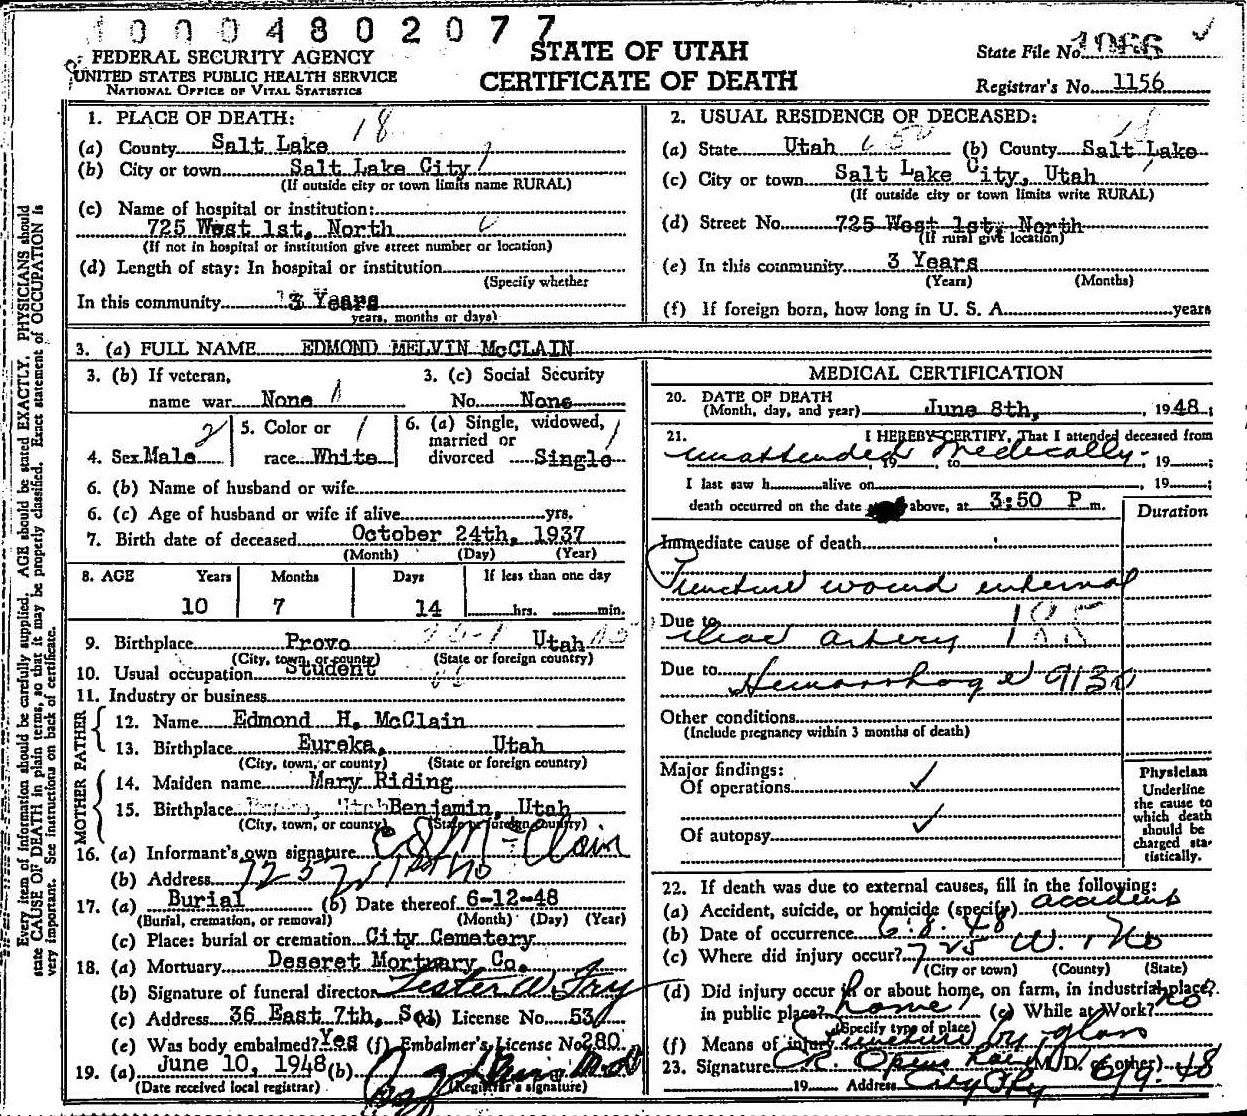 10004802077
FEDERAL SECURITY AGENCY
UNITED STATES PUBLIC HEALTH SERVICE
NATIONAL OFFICE OF VITAL STATISTICS
STATE OF UTAH
CERTIFICATE OF DEATH
State File No. 1066
Registrar's No. 1156
Every item of information should be carefully supplied. AGE should be stated EXACTLY. PHYSICIANS should
state CAUSE OF DEATH in plain terms, so that it may be properly classified. Exact statement of OCCUPATION is
very important. See instructions on back of certificate.
1. PLACE OF DEATH: 18
(a) County Salt Lake
(b) City or town Salt Lake City
(If outside city or town limits name RURAL)
(c) Name of hospital or institution:
725 West 1st, North
(If not in hospital or institution give street number or location)
(d) Length of stay: In hospital or institution
(Specify whether
In this community 3 Years
years, months or days)
2. USUAL RESIDENCE OF DECEASED:
(a) State Utah (b) County Salt Lake
(c) City or town Salt Lake City, Utah
(If outside city or town limits write RURAL)
(d) Street No. 725 West 1st, North
(If rural give location)
(e) In this community 3 Years
(Years) (Months)
(f) If foreign born, how long in U. S. A. years
3. (a) FULL NAME EDMOND MELVIN McCLAIN
3. (b) If veteran,
name war None
3. (c) Social Security
No. None
4. Sex Male
5. Color or
race White
6. (a) Single, widowed,
married or
divorced Single
6. (b) Name of husband or wife
6. (c) Age of husband or wife if alive yrs.
7. Birth date of deceased October 24th, 1937
(Month) (Day) (Year)
8. AGE Years Months Days If less than one day
10 7 14 hrs. min.
9. Birthplace Provo Utah
(City, town, or county) (State or foreign country)
10. Usual occupation Student
11. Industry or business
FATHER
12. Name Edmond H. McClain
13. Birthplace Eureka, Utah
(City, town, or county) (State or foreign country)
MOTHER
14. Maiden name Mary Riding
15. Birthplace Benjamin, Utah
(City, town, or county) (State or foreign country)
16. (a) Informant's own signature Ed McClain
(b) Address 725 W 1st No
17. (a) Burial (b) Date thereof 6-12-48
(Burial, cremation, or removal) (Month) (Day) (Year)
(c) Place: burial or cremation City Cemetery
18. (a) Mortuary Deseret Mortuary Co.
(b) Signature of funeral director Lester W. Fry
(c) Address 36 East 7th, So. (d) License No. 53
(e) Was body embalmed? Yes (f) Embalmer's License No. 280
19. (a) June 10, 1948 (b)
(Date received local registrar) (Registrar's signature)
MEDICAL CERTIFICATION
20. DATE OF DEATH
(Month, day, and year) June 8th, , 1948;
21. I HEREBY CERTIFY, That I attended deceased from
unattended medically , 19 , to , 19 ;
I last saw h alive on , 19 ;
death occurred on the date above, at 3:50 P m.
Duration
Immediate cause of death
Puncture wound external
Due to
iliac artery 185
Due to
Hemorrhage 9130
Other conditions
(Include pregnancy within 3 months of death)
Major findings:
Of operations ✓
Of autopsy ✓
Physician
Underline
the cause to
which death
should be
charged sta-
tistically.
22. If death was due to external causes, fill in the following:
(a) Accident, suicide, or homicide (specify) accident
(b) Date of occurrence 6.8.48
(c) Where did injury occur? 725 W. 1 No
(City or town) (County) (State)
(d) Did injury occur in or about home, on farm, in industrial place?
in public place? home (e) While at Work? no
(Specify type of place)
(f) Means of injury puncture by glass
23. Signature M. D. (or other) 6/9.48
19 Address City Phy